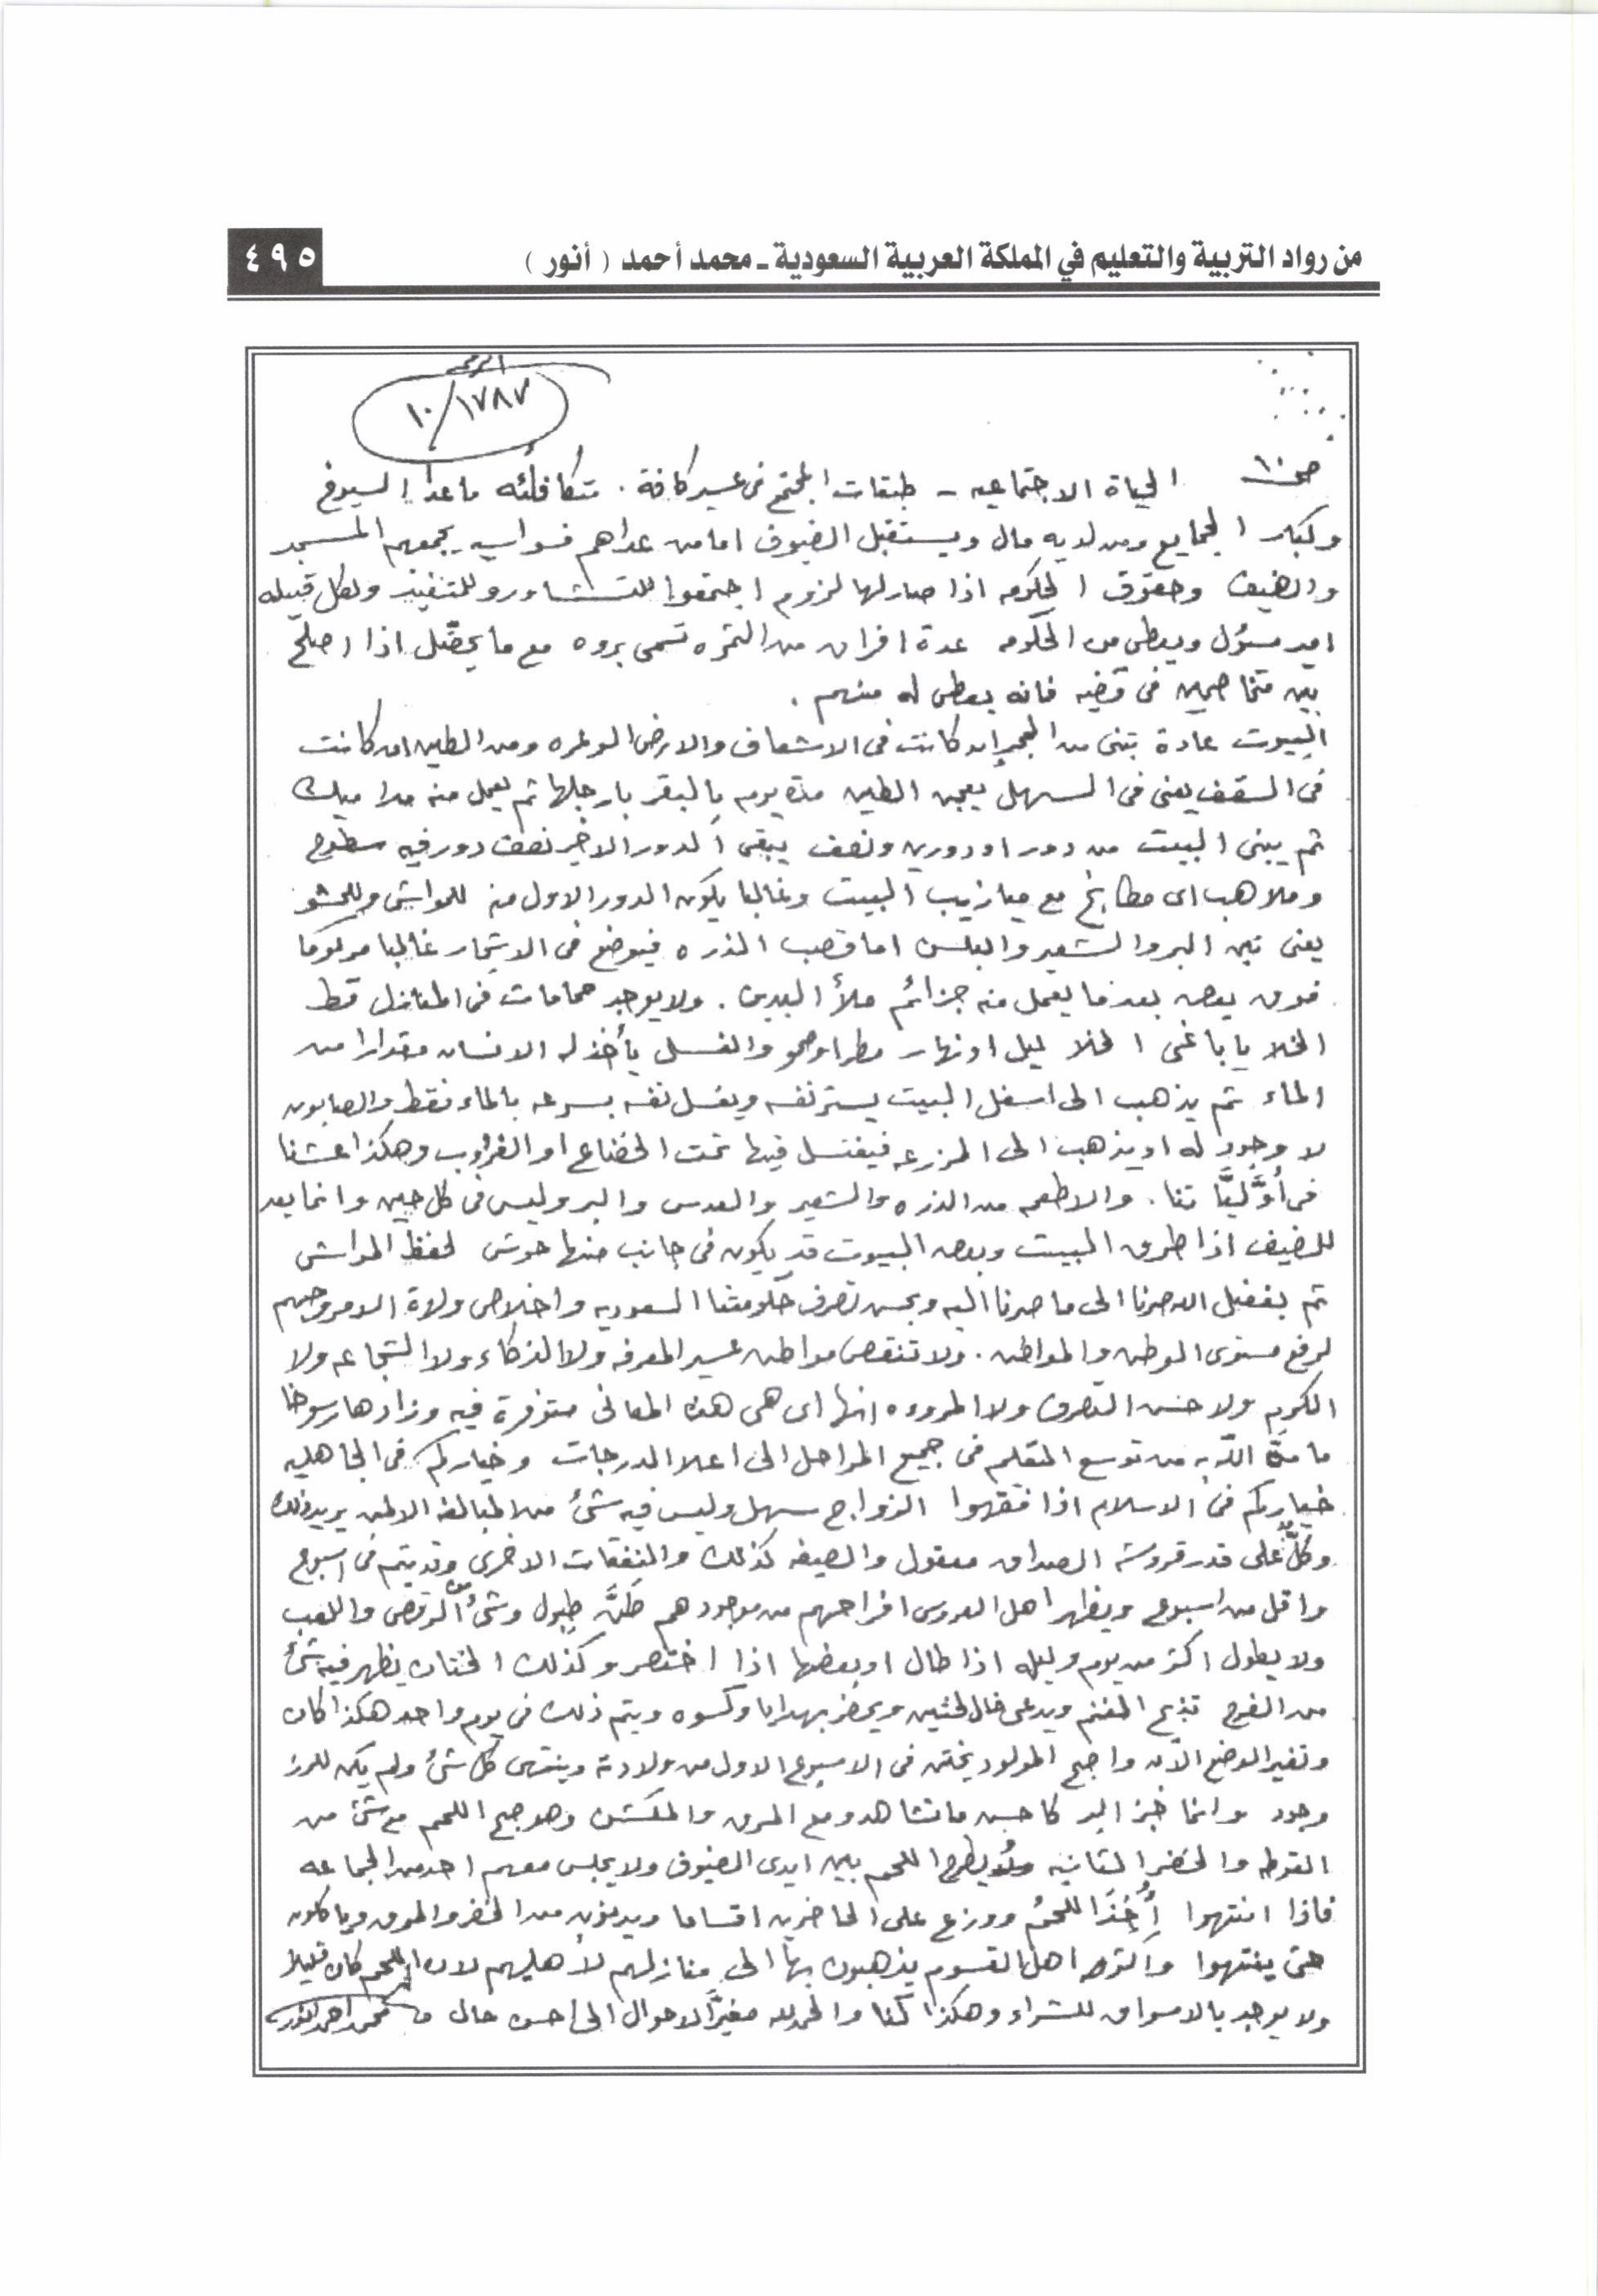 من رواد التربية والتعليم في المملكة العربية السعودية ـ محمد أحمد ( أنور )
٤٩٥
الرقم
١٠/١٧٨٧
ص١٠ الحياة الاجتماعيه – طبقات المجتمع فى عسير كافة . متكافئه ما عدا الشيوخ
وكبار ومن لديه مال ويستقبل الضيوف اما من عداهم فسواسيه يجمعهم المسجد
والضيف وحقوق الحكومه اذا صار لها لزوم اجتمعوا للتشاور وللتنفيذ ولكل قبيله
امير مسئول ويعطى من الحكومه عدة افراق من الثمره تسمى بروه مع ما يحصّل اذا اصلح
بين متخاصمين فى قضيه فانه يعطى له منهم .
البيوت عادة تبنى من الحجر ان كانت فى الاشعاف والارض الوعره ومن الطين ان كانت
فى السقف يعنى فى السهل يعجن الطين مدة يوم بالبقر بارجلها ثم يعمل منه مداميك
ثم يبنى البيت من دور او دورين ونصف يبقى الدور الاخير نصف دور فيه سطوح
وملاهب اى مطابخ مع ميازيب البيت وغالبا يكون الدور الاول منه للمواشى وللحشو
يعنى تبن البر والشعير والبلسن اما قصب الذره فيوضع فى الاشجار غالبا مركوما
فوق بعض بعد ما يعمل منه جزائم ملأ اليدين . ولا يوجد حمامات فى المنازل قط
الخلا يا باغى الخلا ليل او نهار مطر او صحو والغسل يأخذ له الانسان مقدارا من
الماء ثم يذهب الى اسفل البيت يستر نفسه ويغسل نفسه بسرعه بالماء فقط والصابون
لا وجود له او يذهب الى المزرعه فيغتسل فيها تحت او الغروب وهكذا عشنا
فى أوَّليَّاتنا . والاطعمه من الذره والشعير والعدس والبر وليس فى كل حين وانما يعد
للضيف اذا طرق البيت وبعض البيوت قد يكون فى جانب منها حوش لحفظ المواشى
ثم بفضل الله صرنا الى ما صرنا اليه وبحسن تصرف حكومتنا السعوديه واخلاص ولاة الامر وحبهم
لرفع مستوى الوطن والمواطن . ولا تنقص مواطن عسير المعرفه ولا الذكاء ولا الشجاعه ولا
الكرم ولا حسن التصرف ولا المروءه انها اى هى هذه المعانى متوفرة فيه وزادها رسوخا
ما منَّ الله به من توسع التعليم فى جميع المراحل الى اعلا الدرجات وخياركم فى الجاهليه
خياركم فى الاسلام اذا فقهوا الزواج سهل وليس فيه شئ من المبالغه الا لمن يريد ذلك
وكلٌّ على قدر قروشه الصداق معقول والصيغه كذلك والنفقات الاخرى وقد يتم فى اسبوع
واقل من اسبوع ويظهر اهل العروس افراحهم من موجودهم طبول وشئ من الرقص واللعب
ولا يطول اكثر من يوم وليله اذا طال او بعضها اذا اختصر وكذلك الختان يظهر فيه شئ
من الفرح تذبح الغنم ويدعى خال الختين ويحضر بهدايا وكسوه ويتم ذلك فى يوم واحد هكذا كان
وتغير الوضع الآن واصبح المولود يختن فى الاسبوع الاول من ولادته وينتهى كل شئ ولم يكن للرز
وجود وانما خبز البر كاحسن ما تشاهد ومع المرق والمكشن وهو جمع اللحم مع شئ من
القوطه والخضر الثانيه ويطرح اللحم بين ايدى الضيوف ولا يجلس معهم احد من الجماعه
فاذا انتهوا أُخِذَ اللحمُ ووزع على الحاضرين اقساما ويدنون من الخضر والمرق وياكلون
حتى ينتهوا واكثر اهل القسوم يذهبون بها الى منازلهم لأهليهم لان اللحم كان قليلا
ولا يوجد بالاسواق للشراء وهكذا كنا والحمد لله مغيِّر الاحوال الى احسن حال محمد احمد انور